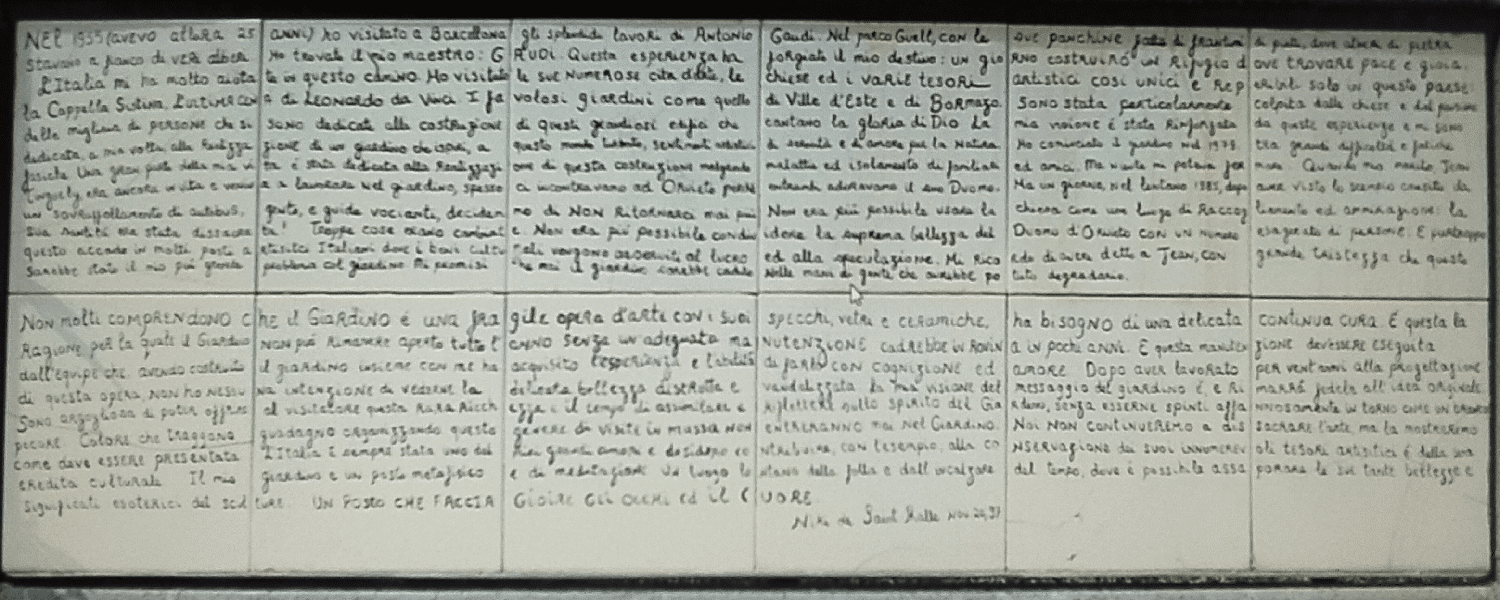 NEL 1955 (avevo allora 25 ANNI) ho visitato a Barcellona gli splendidi lavori di Antonio Gaudi. Nel parco Guell, con le due panchine fatte di
stavano a fianco di veri alberi Ho trovato il mio maestro: GAUDI. Questa esperienza ha forgiato il mio destino: UN gioRNO COSTRUIRÒ UN Rifugio d ove TROVARE PACE e gioia.
L'Italia mi ha molto aiutata in questo camino. Ho visitato le sue NUMEROSE città d'arte, le chiese ed i VARIE TESORI artistici così unici e Reperibili solo in questo paese:
la Cappella Sistina, L'ultima cena di LEONARDO da Vinci I favolosi giardini come quello di Ville d'Este e di Bormazo. SONO STATA particolarmente colpita dalle chiese e dal
delle migliaia di PERSONE che si SONO dedicate alla costruzione di questi grandiosi edifici che cantano la gloria di Dio La mia visione è stata Rinforzata da queste esperienze e mi sono
dedicata, a mia volta, alla Realizzazione di un giardino che questo mondo di serenità e d'amore per la Natura Ho cominciato il giardino nel 1979. tra grandi difficoltà e fatiche
fisiche Una gran parte della mia vita è stata dedicata alla Realizzazione di questa costruzione malgrado malattia ed isolamento di famiglia ed amici. Ma niente mi poteva Quando mio marito, Jean
Tinguely era ancora in vita e veniva a lavorare nel giardino, spesso ci incontravamo ad Orvieto perché entrambi adoravamo il suo Duomo. Ma un giorno, nel lontano 1985, dopo aver visto lo scempio causato da
un sovraffollamento di autobus, gente, e guide vocianti, decidemmo di NON RITORNARCI mai più Non era più possibile usare la chiesa come un luogo di Raccoglimento ed ammirazione: la
sua santità era stata dissacrata! Troppe cose erano cambiate. Non era più possibile condividere la suprema bellezza del Duomo d'Orvieto CON UN NUMERO esagerato di persone. E purtroppo
questo accade in molti posti Italiani dove i beni culturali vengono asserviti al lucro ed alla speculazione. Mi ricordo di aver detto a Jean, con grande tristezza che questo
sarebbe stato il mio più grande problema col giardino Mi promisi che mai il giardino sarebbe caduto nelle mani di gente che avrebbe potuto degradarlo.
NON molti COMPRENDONO CHE il GIARDINO è UNA FRAgile opera d'arte con i suoi SPECCHI, vetri e CERAMICHE, ha bisogno di una delicata CONTINUA CURA. È questa la
Ragione per la quale il Giardino NON può Rimanere aperto tutto l'ANNO SENZA UN'adeguata maNUTENZIONE CADREBBE IN ROVINA in pochi anni. E questa manutenzione dev'essere eseguita
dall'équipe che, avendo costruito il giardino insieme con me ha acquisito l'esperienza e l'abilità di farlo CON COGNIZIONE ED AMORE. Dopo aver lavorato per vent'anni alla progettazione
di questa opera, NON ho NESSUNA intenzione di vederne la delicata bellezza distrutta e vandalizzata. La mia visione del messaggio del giardino è, e RiMARRÀ fedele all'idea originale
Sono orgogliosa di poter offrire al visitatore questa RARA Ricchezza e il tempo di assimilare e Riflettere sullo spirito del Giardino, senza esserne spinti affannosamente in TORNO COME UN BRANCO
pecore. Coloro che traggono guadagno organizzando questo genere di visite in massa NON ENTRERANNO mai nel Giardino. Noi NON CONTINUEREMO a disSACRARE l'arte, ma la mostreremo
come deve essere PRESENTATA L'Italia è sempre stata uno dei miei grandi amori e desidero contribuire, con l'esempio, alla coNSERVAZIONE dei suoi innumerevoli tesori artistici e della sua
EREDITÀ culturale Il mio giardino è un posto metafisico e di meditazione un luogo lontano dalla folla e dall'incalzare del tempo, dove è possibile assaporare le sue tante bellezze e
significati esoterici del sculture. UN POSTO CHE FACCIA GIOIRE GLI OCCHI ed il CUORE.
Niki de Saint Phalle Nov 24, 97